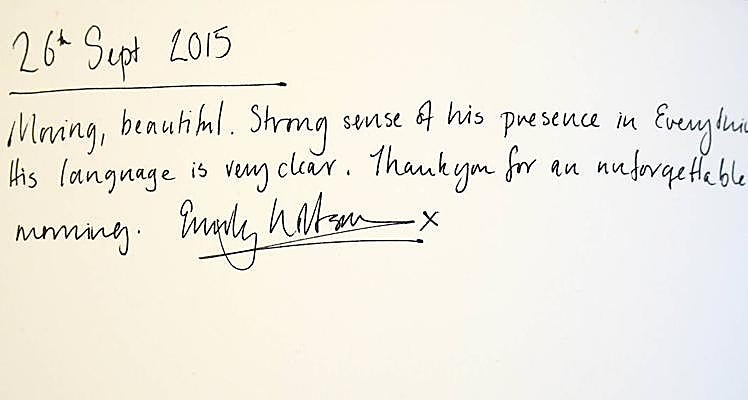 26th Sept 2015
Moving, beautiful. Strong sense of his presence in Everythin
His language is very clear. Thankyou for an unforgettable
morning. Emily Watson x